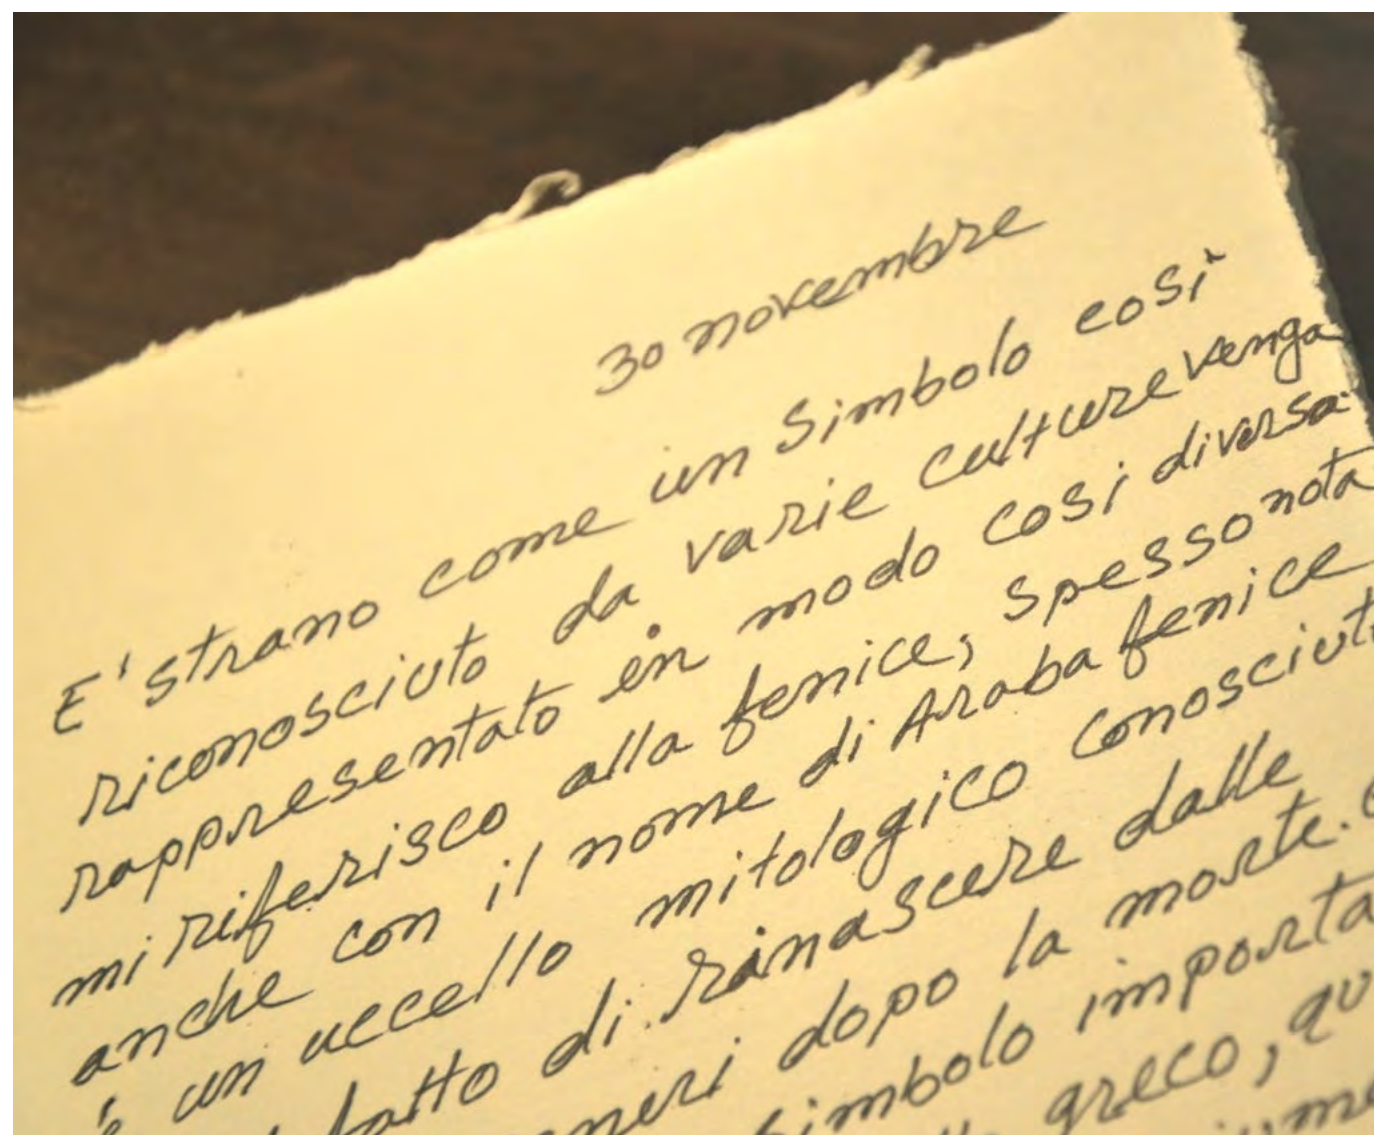 30 novembre
E' strano come un simbolo così
riconosciuto da varie culture venga
rappresentato in modo così diverso
mi riferisco alla fenice, spesso nota
anche con il nome di Araba fenice
è un uccello mitologico conosciuto
fatto di rinascere dalle
dopo la morte.
simbolo importa
greco, qu